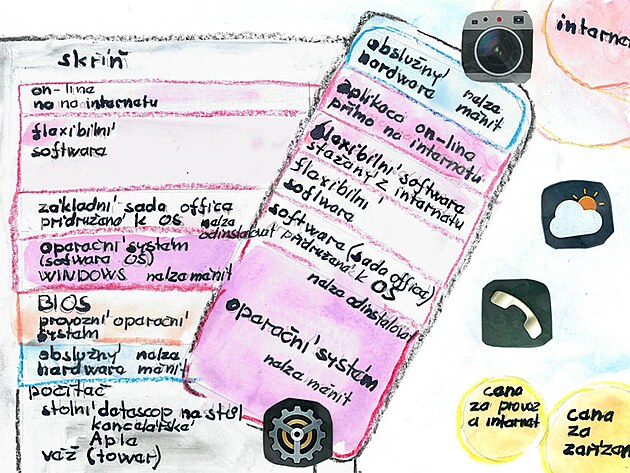 skříň
on-line
na na internatu
flaxibilní
softwara
základní sada office
přidružaná k OS nalza
odinstalovat
oparační systám
(softwara OS)
WINDOWS nalza mánit
BIOS
provozní oparační
systám
obslužný nalza
hardwara mánit
počítač
stolní datascop na stůl
kancalářská
Apla
věž (towar)
obslužný nalza
hardwara mánit
aplikaca on-lina
přímo na intarnatu
flaxibilní softwara
stažaný z internatu
flaxibilní
softwara
softwara (sada office)
přidružaná k OS
nalza odinstalovat
oparační systám
nalza mánit
cana
za provoz
a internat
cana
za